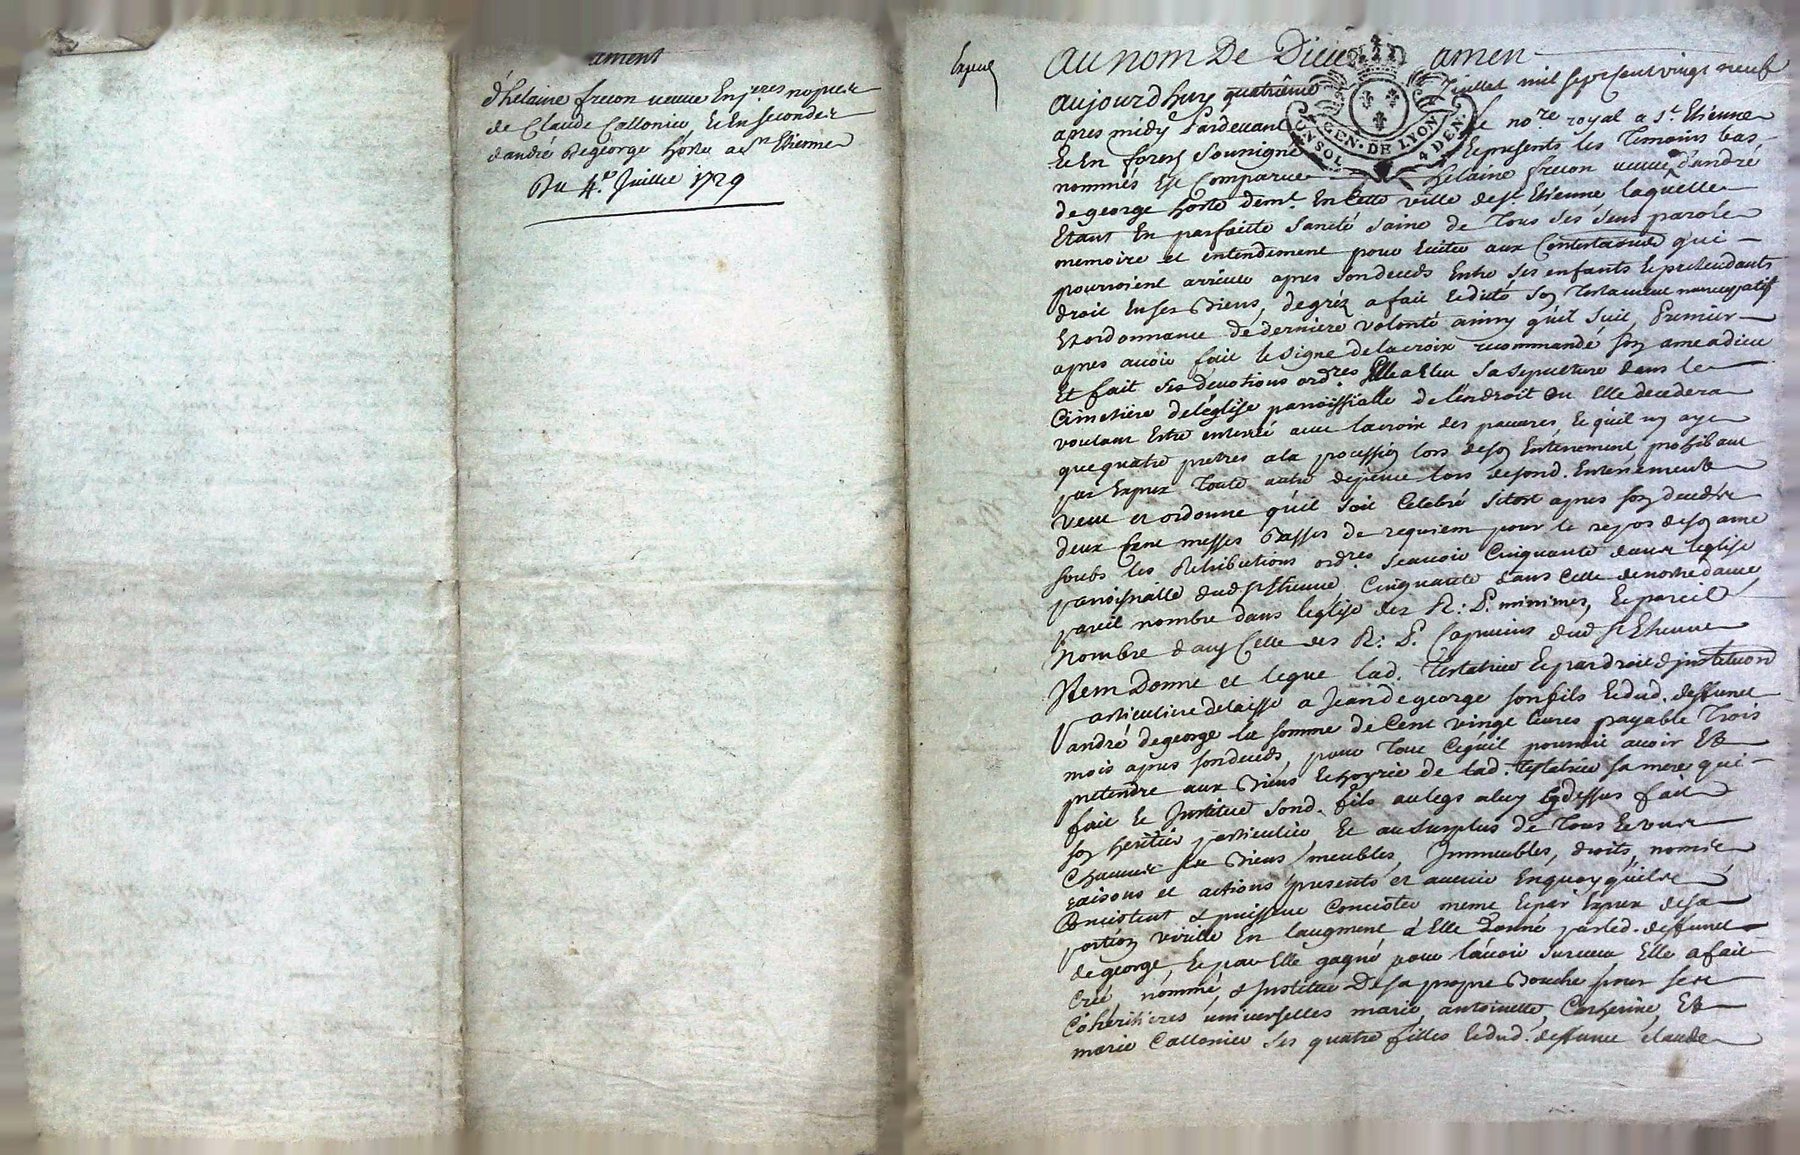 ament
d'helaine frecon veuve En jeres nopces
de Claude Callonier & En secondes
d'andré Degeorge hoste a St Etienne
Du 4e Juillet 1729
Expedié
Au nom De Dieu amen
Aujourdhuy quatrième Juillet mil sept cent vingt neuf
apres midy Pardevant Le nore royal a St. Etienne
& En forest soussigné & presents les Temoins bas
nommés est Comparue helaine frecon veuve d'andré
degeorge hoste demt. En Cette ville de St. Etienne laquelle
Etant En parfaitte santé saine de Tous ses sens parole
memoire et entendement pour Eviter aux Contestaones qui
pourroient arriver apres son deceds Entre ses enfants & pretendants
droit En ses Biens, de gréz a fait & dicté son Testament nuncupatif
Et ordonnance de derniere volonté ainsy qu'il suit, Premier
apres avoir fait le signe de la croix recommandé son ame a dieu
Et fait ses devotions ordres. Elle a Eleu sa sepulture dans le
Cimetière de l'église parroissialle de l'endroit ou Elle decedera
voulant Estre enterrée avec la croix des pauvres, & qu'il ny aye
que quatre pretres a la procession lors de son Enterrement prohibant
par Exprez Toute autre depence lors de sond. Enterrement
veut et ordonne qu'il soit Celebré sitost apres son deceds
deux Cent messes Basses de requiem pour le repos de son ame
soubs les Retributions ordres. scavoir Cinquante dans l'eglise
parroissialle dud St Etienne, Cinquante dans Celle de nostre dame,
pareil nombre dans l'eglise des R: P. minimes, & pareil
Nombre dans Celle des R: P. Capucins dud St Etienne
Item Donne et legue lad. Testatrice & par droit d'institution
particuliere delaisse a Jean degeorge son fils & dud. deffunct
andré degeorge la somme de Cent vingt livres payable Trois
mois apres son deceds, pour Tout Ce qu'il pourroit avoir Et
pretendre aux Biens & hoyrie de lad. testatrice sa mere qui
fait & Institue sond. fils au legs a luy Cy dessus fait
son heritier particulier Et au surplus de Tous & uns
Chacuns ses Biens meubles, Immeubles, droits, noms
raisons et actions presents et avenir En quoy qu'ils
Concistent & puissent Concister meme & par Exprez de sa
portion virille En l'augment d'Elle donné par led. deffunct
degeorge, & par Elle gagné pour l'avoir survecu Elle a fait
Créé, nommé, & Institué De sa propre Bouche pour ses
Cohéritieres universelles marie, antoinette, Catherine, Et
marie Callonier ses quatre filles & dud. deffunct Claude
GEN. DE LYON
4 DEN.